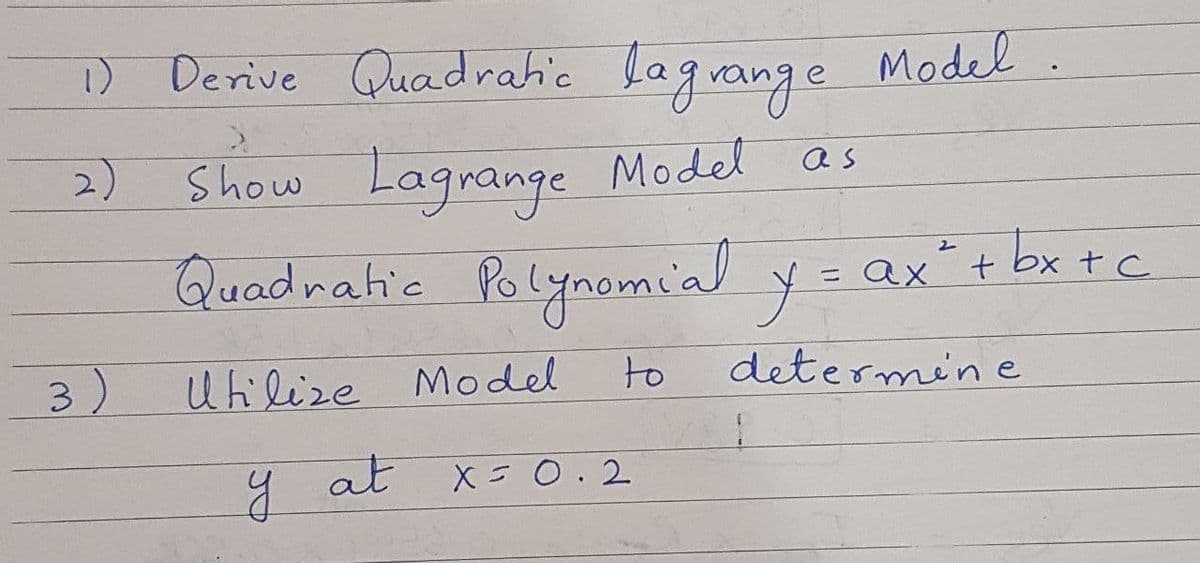 1) Derive Quadratic lagrange Model.
2) Show Lagrange Model as
Quadratic Polynomial y = ax² + bx + c
3) Utilize Model to determine
y at x = 0.2